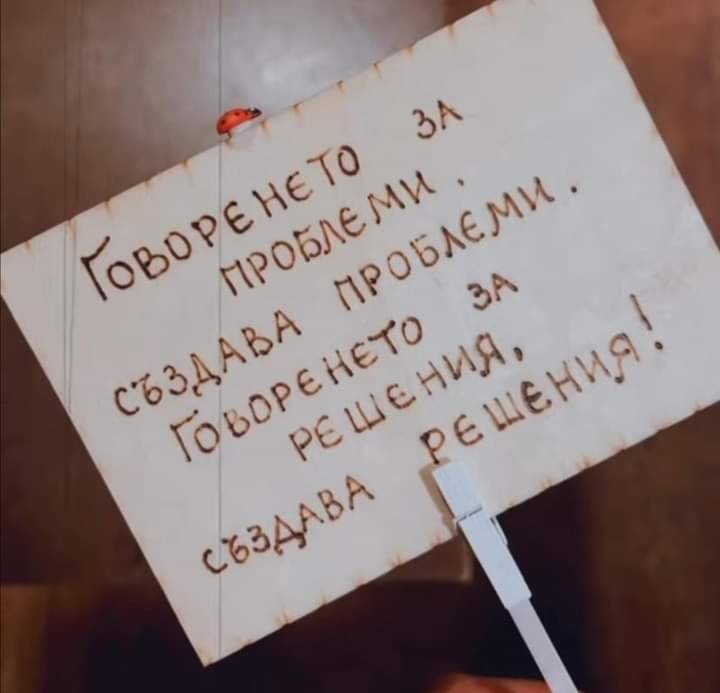 Говоренето за
проблеми.
създава проблеми.
Говоренето за
решения,
създава решения!